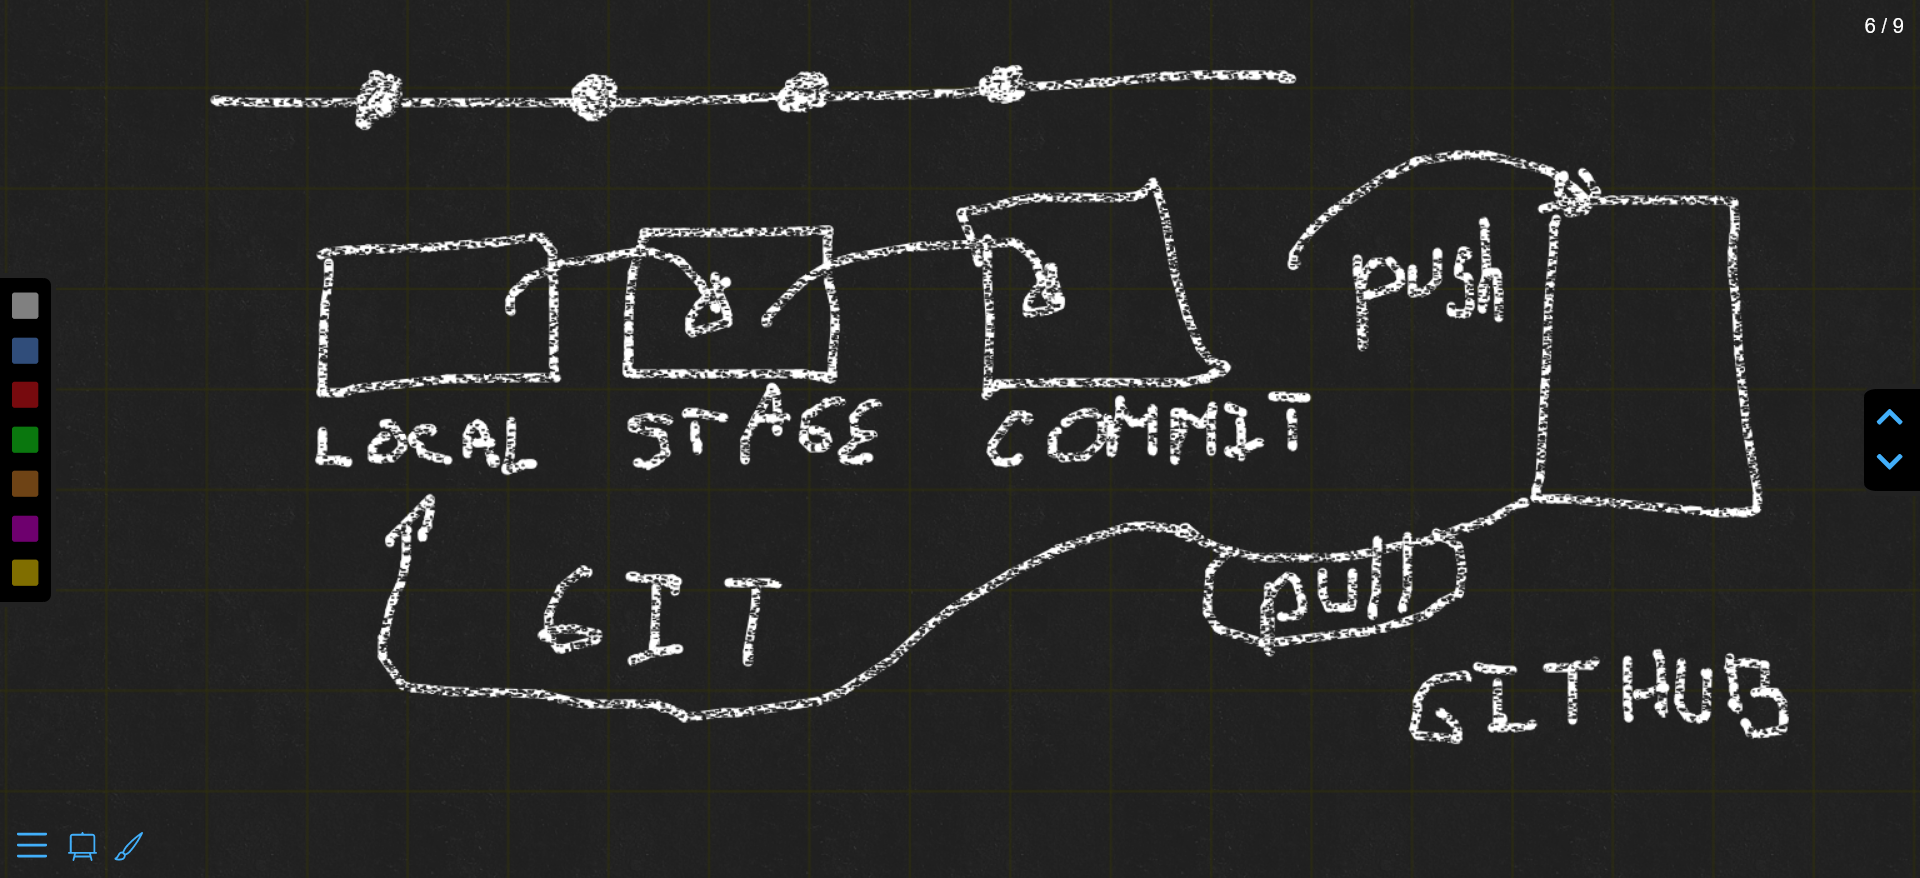 6 / 9
push
LOCAL STAGE COMMIT
pull
GIT
GITHUB